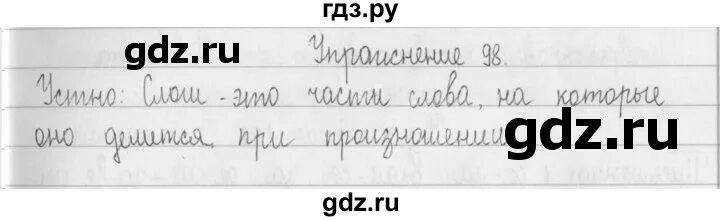 гдз.ру
gdz.ru gdz.ru
Упражнение 98.
Устно: Слоги - это части слова, на которые
оно делится при произношении
gdz.ru
gdz.ru
gdz.ru